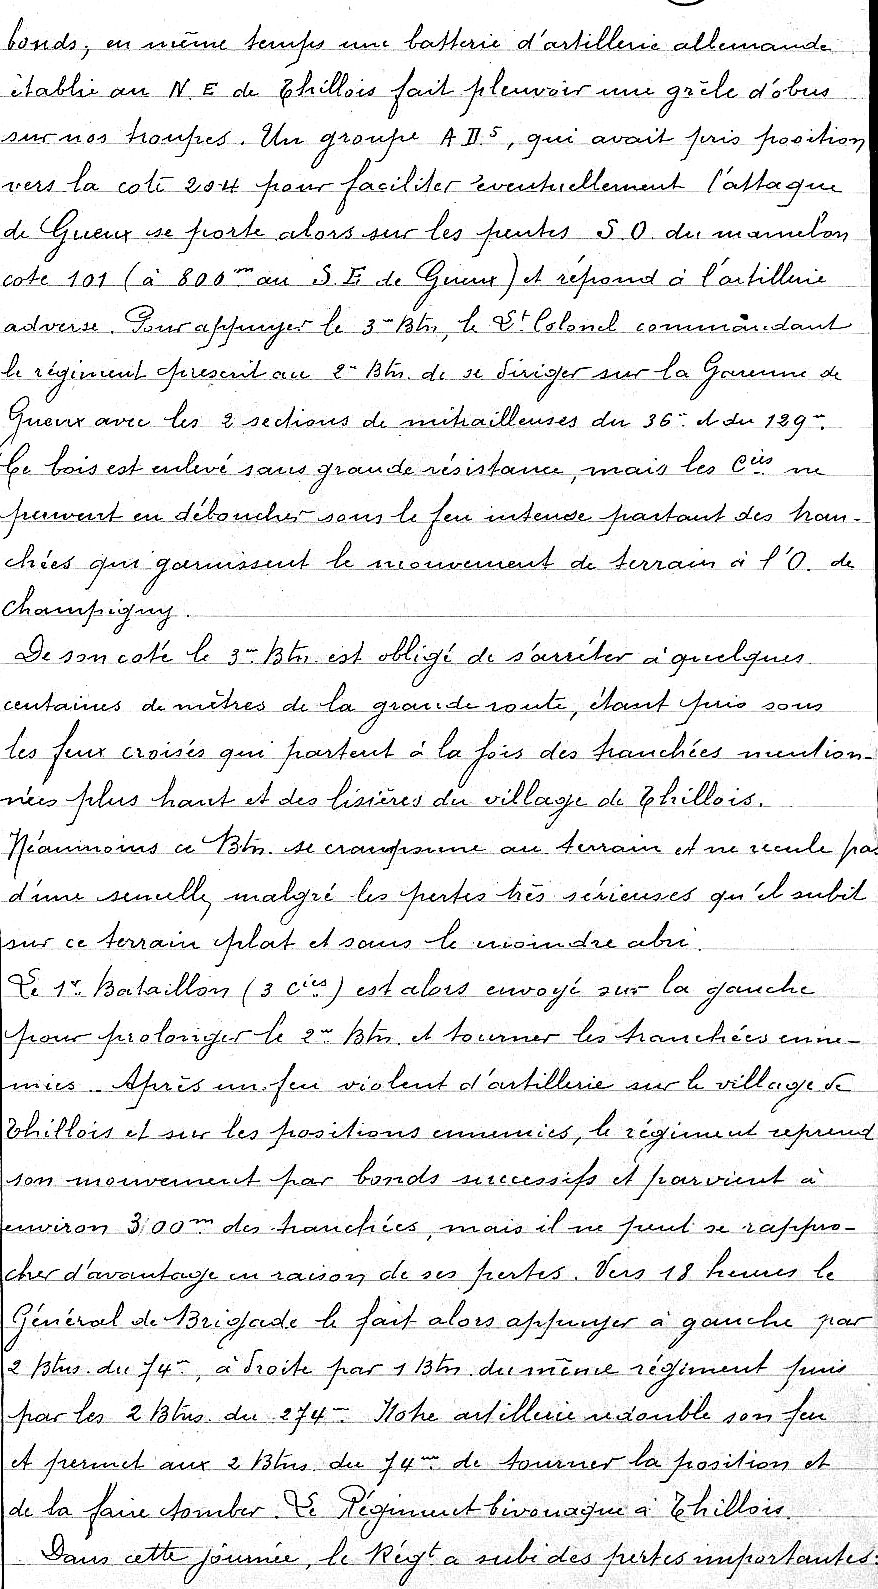 bonds, en même temps une batterie d'artillerie allemande
établie au N.E de Thillois fait pleuvoir une grêle d'obus
sur nos troupes. Un groupe A D 5, qui avait pris position
vers la cote 204 pour faciliter éventuellement l'attaque
de Gueux se porte alors sur les pentes S.O. du mamelon
cote 101 (à 800m au S.E de Gueux) et répond à l'artillerie
adverse. Pour appuyer le 3me Btn, le Lt Colonel commandant
le régiment prescrit au 2me Btn. de se diriger sur la Garenne de
Gueux avec les 2 sections de mitrailleuses du 36me et du 129me.
Ce bois est enlevé sans grande résistance, mais les Cies ne
peuvent en déboucher sous le feu intense partant des tran-
chées qui garnissent le mouvement de terrain à l'O. de
Champigny.
De son coté le 3me Btn. est obligé de s'arrêter à quelques
centaines de mètres de la grande route, étant pris sous
les feux croisés qui partent à la fois des tranchées mention-
nées plus haut et des lisières du village de Thillois.
Néanmoins ce Btn. se cramponne au terrain et ne recule pas
d'une semelle, malgré les pertes très sérieuses qu'il subit
sur ce terrain plat et sans le moindre abri.
Le 1er Bataillon (3 Cies) est alors envoyé sur la gauche
pour prolonger le 2me Btn. et tourner les tranchées enne-
mies. Après un feu violent d'artillerie sur le village de
Thillois et sur les positions ennemies, le régiment reprend
son mouvement par bonds successifs et parvient à
environ 300m des tranchées, mais il ne peut se rappro-
cher d'avantage en raison de ses pertes. Vers 18 heures le
Général de Brigade le fait alors appuyer à gauche par
2 Btns. du 74me, à droite par 1 Btn. du même régiment puis
par les 2 Btns. du 274me Notre artillerie redouble son feu
et permet aux 2 Btns. du 74me de tourner la position et
de la faire tomber. Le Régiment bivouaque à Thillois.
Dans cette journée, le Régt a subi des pertes importantes: